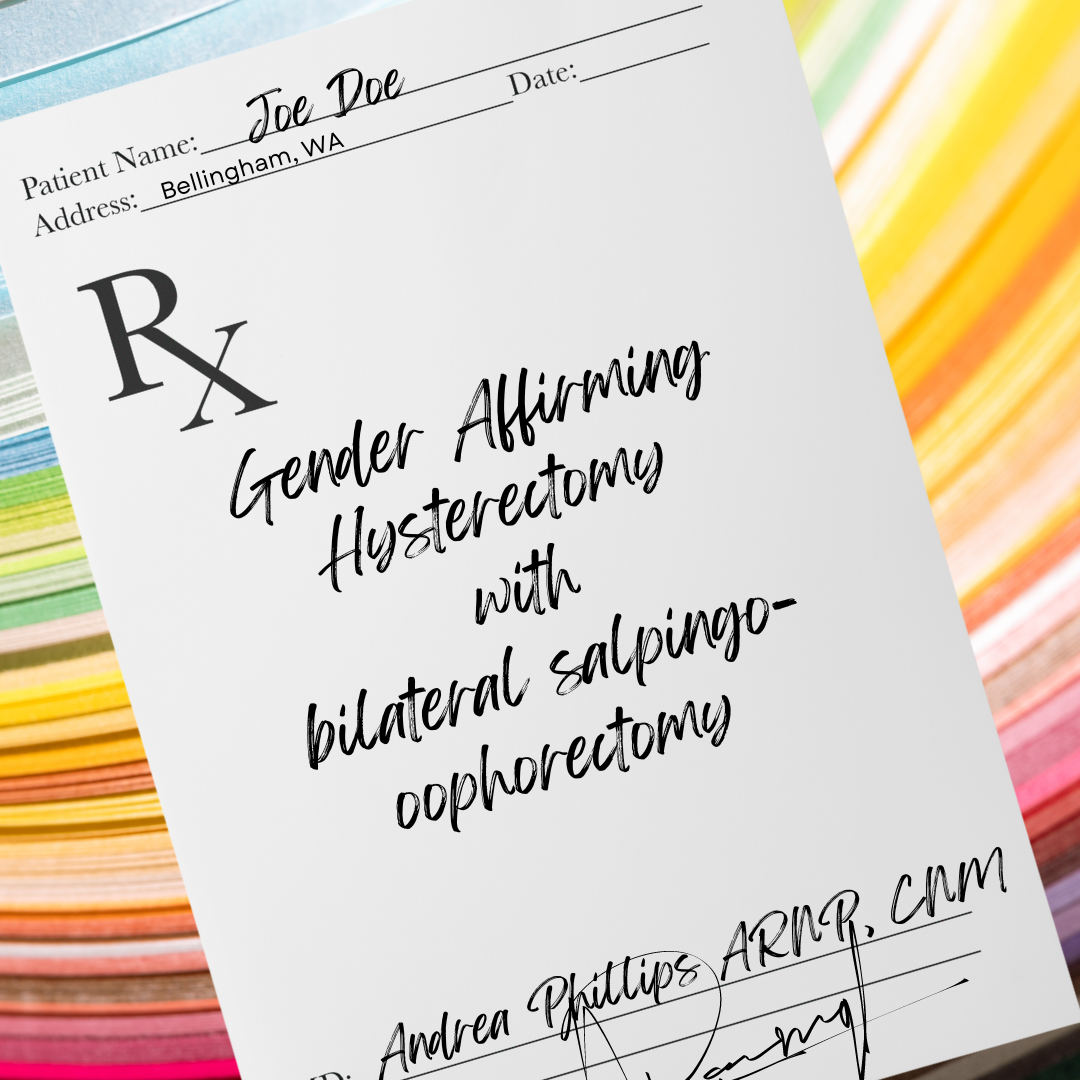 Patient Name: Joe Doe
Address: Bellingham, WA Date:
Rx
Gender Affirming
Hysterectomy
with
bilateral salpingo-
oophorectomy
Andrea Phillips ARNP, CNM